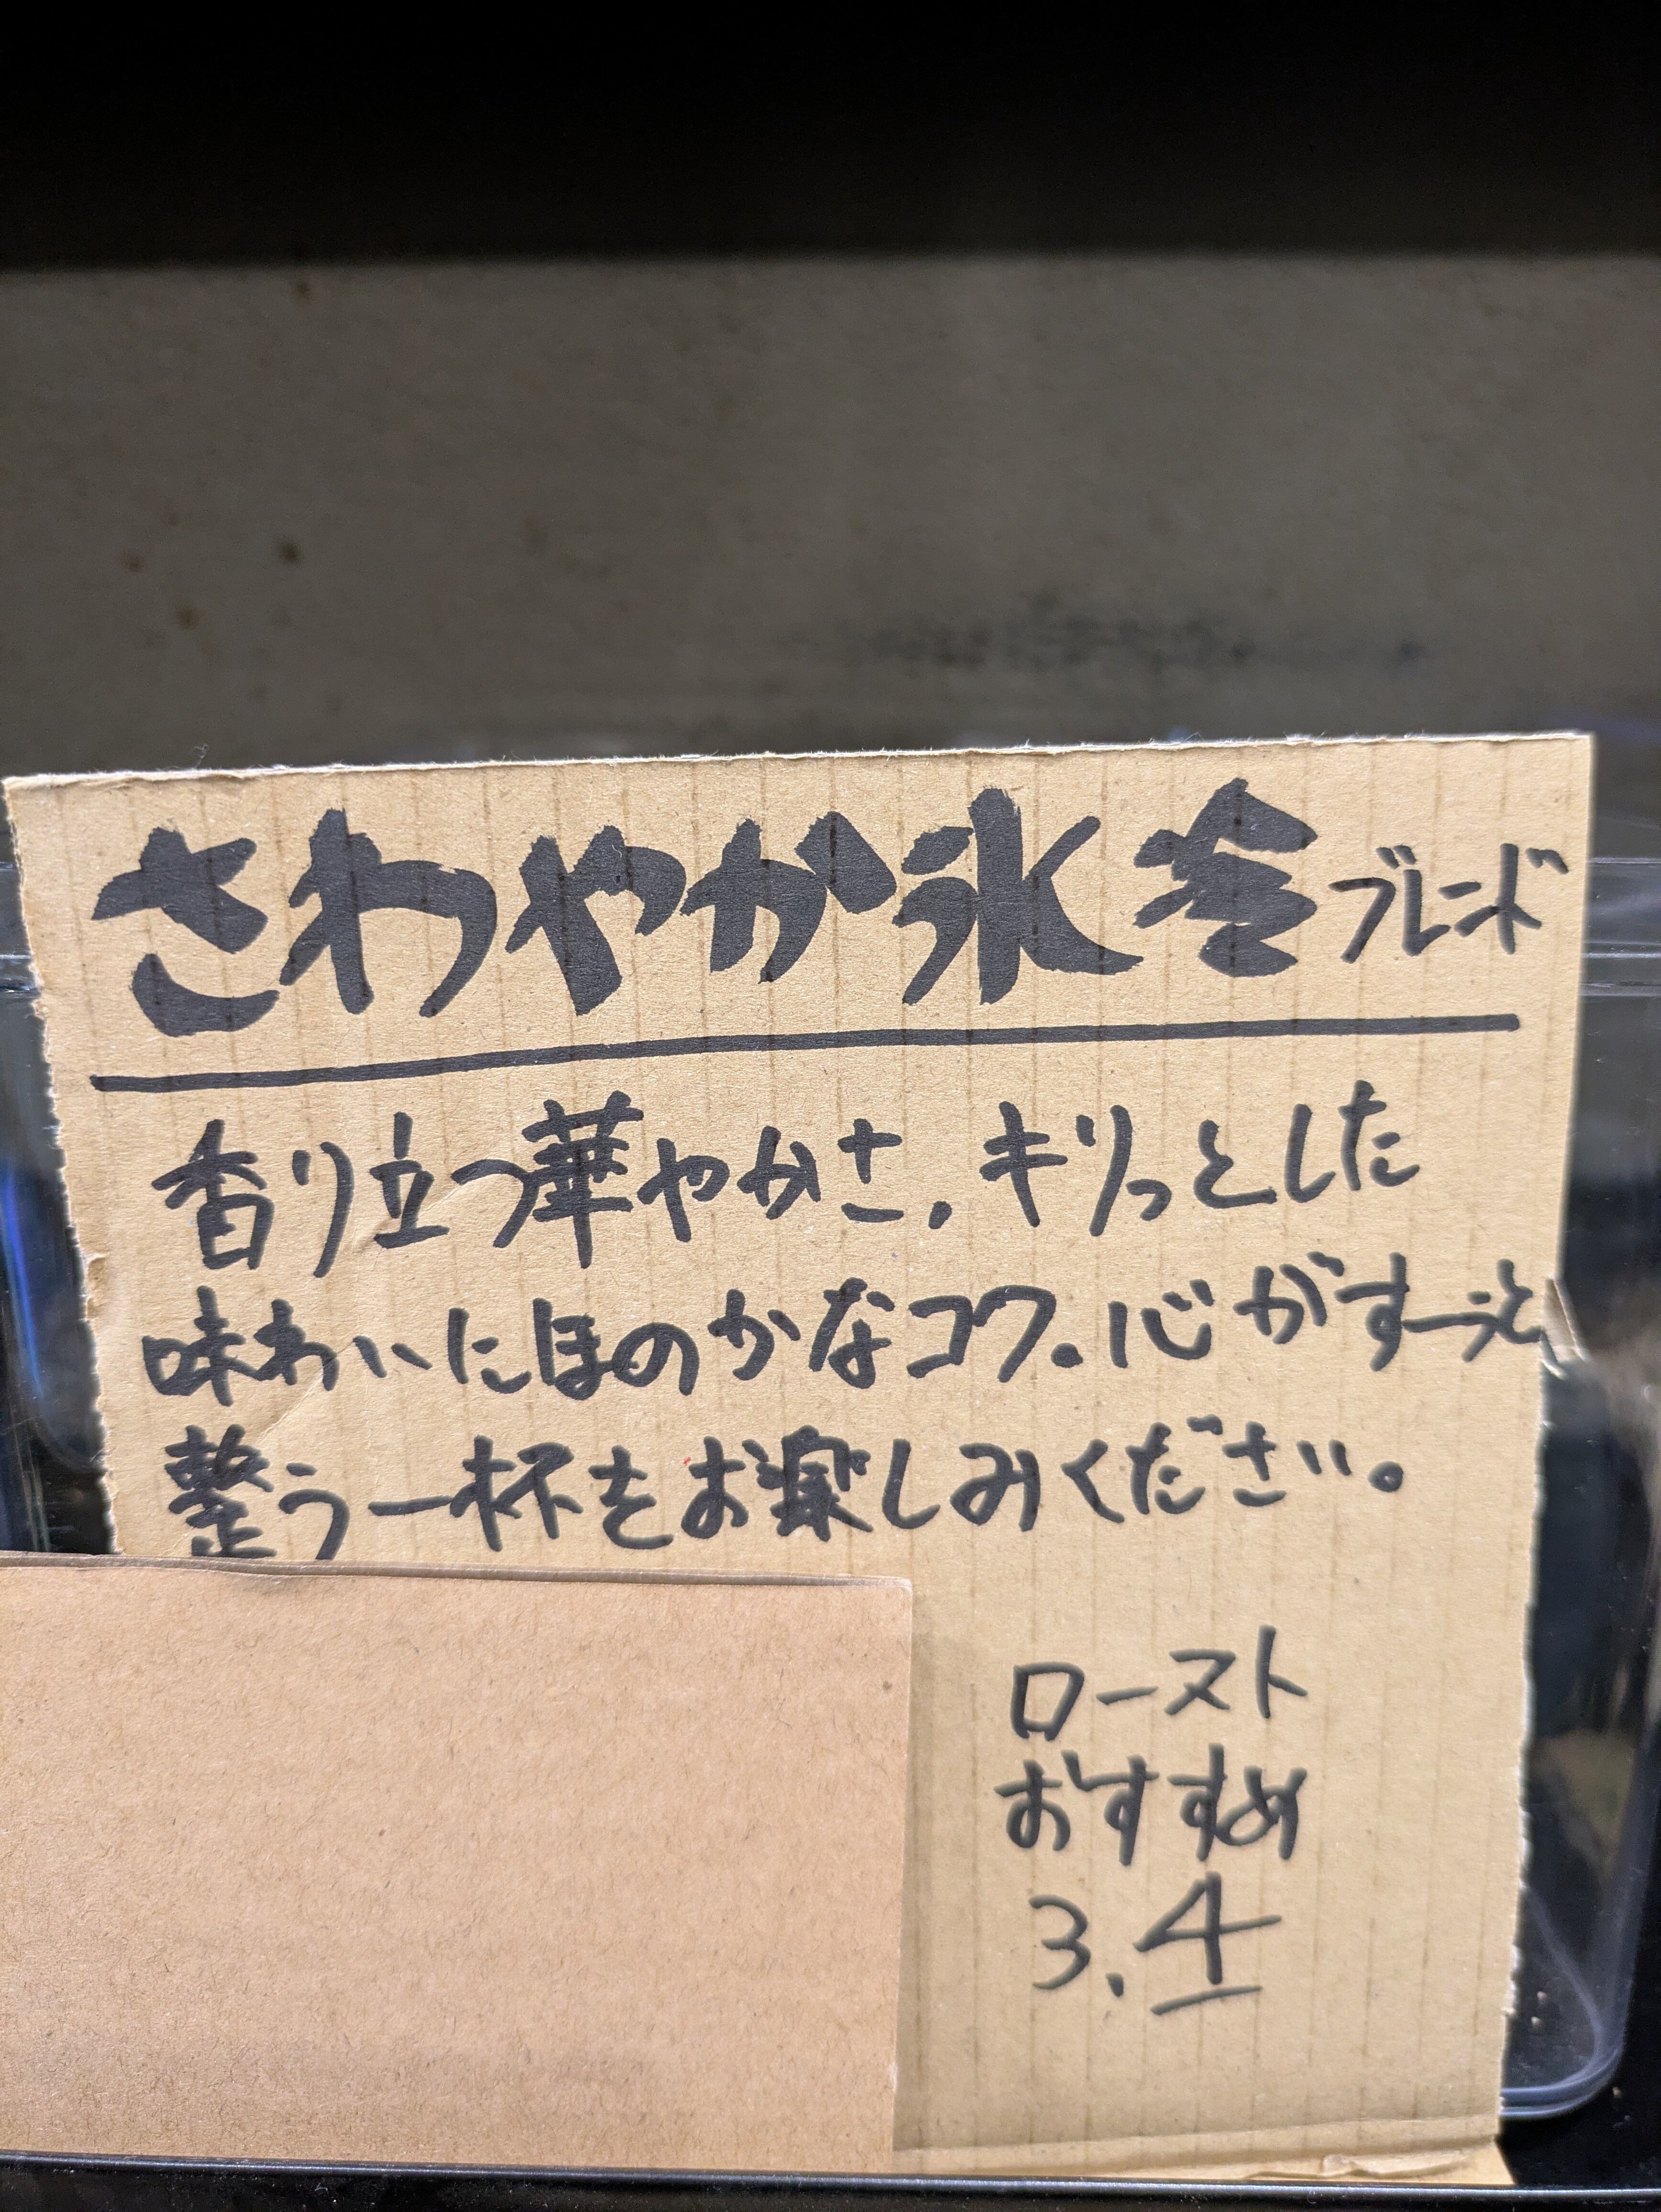 さわやか氷冷ブレンド
香り立つ華やかさ、キリっとした
味わいにほのかなコク。心がすーっと
整う一杯をお楽しみください。
ロースト
おすすめ
3.4